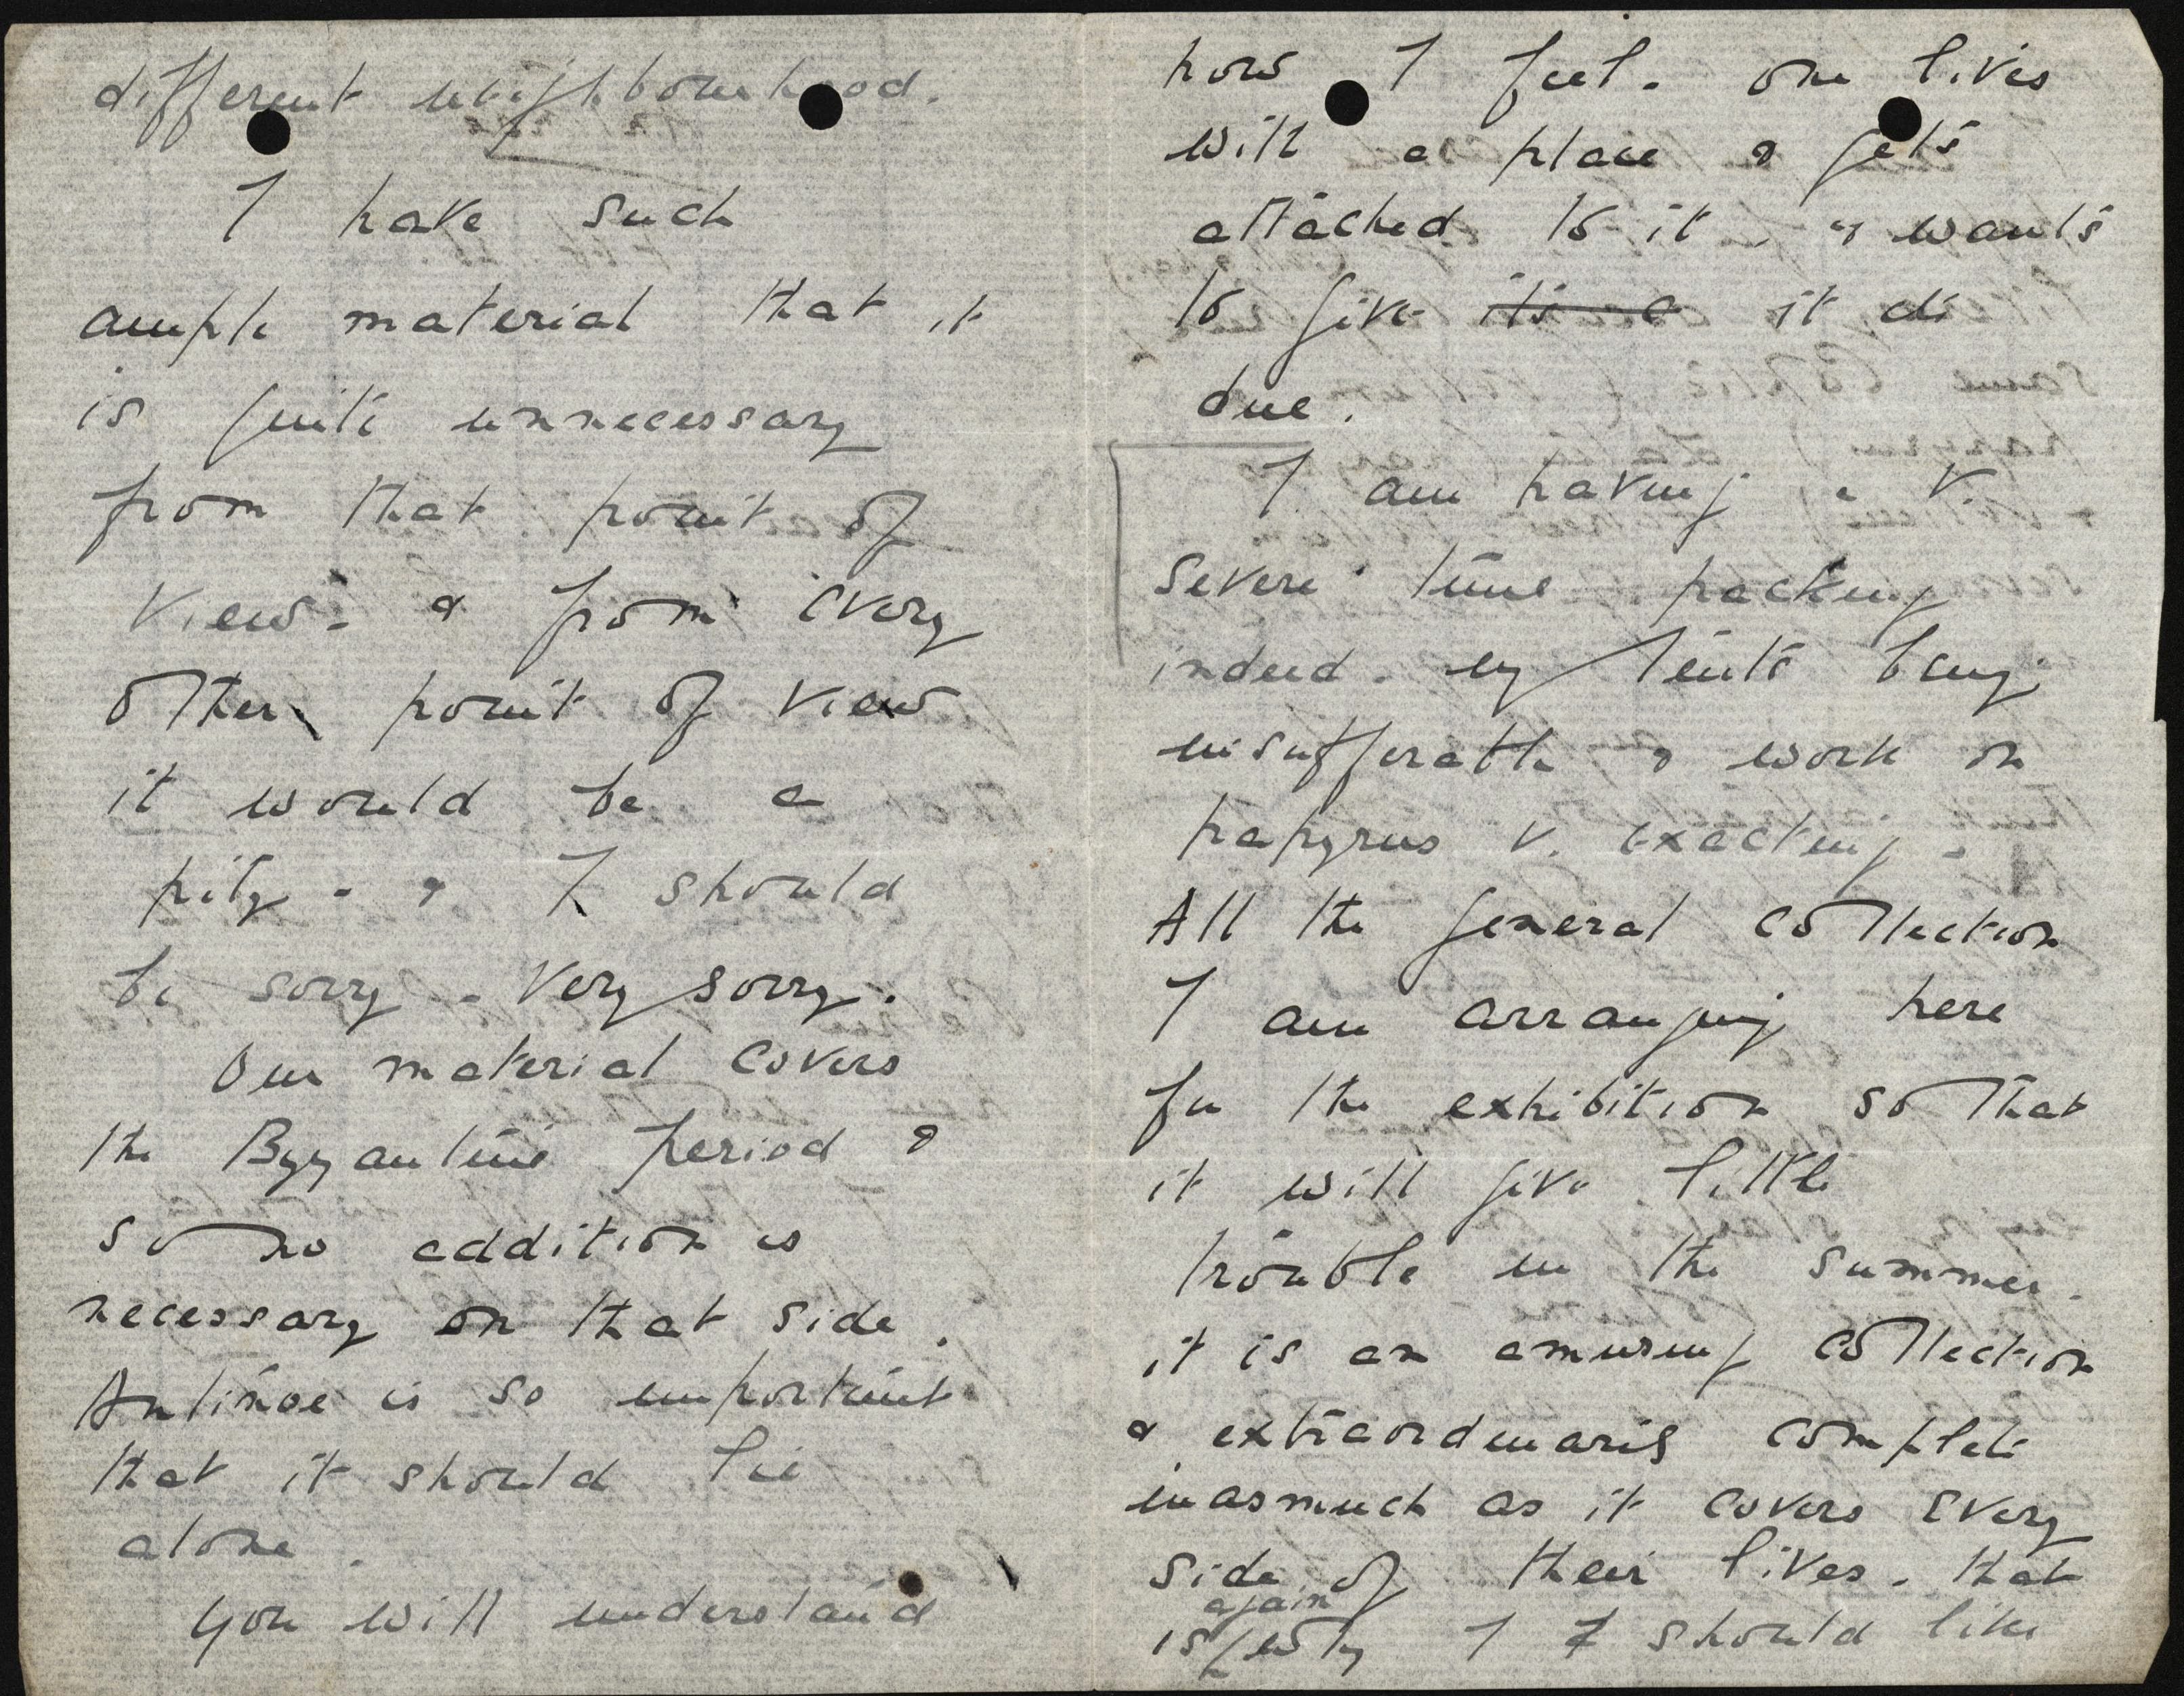 different neighbourhood.
I have such
ample material that it
is quite unnecessary
from that point of
view - & from every
other point of view
it would be a
pity - & I should
be sorry - very sorry.
Our material covers
the Byzantine period &
so no addition is
necessary on that side.
Antinoe is so important
that it should lie
alone.
You will understand
how I feel. One lives
with a place & gets
attached to it. & wants
to give its it its
due.
I am having a v.
severe time packing
indeed. my tents being
insufferable & work on
papyrus v. exacting -
All the general collection
I am arranging here
for the exhibition so that
it will give little
trouble in the summer.
it is an amusing collection
& extraordinarily complete
inasmuch as it covers every
side of their lives. that
again
is why I should like